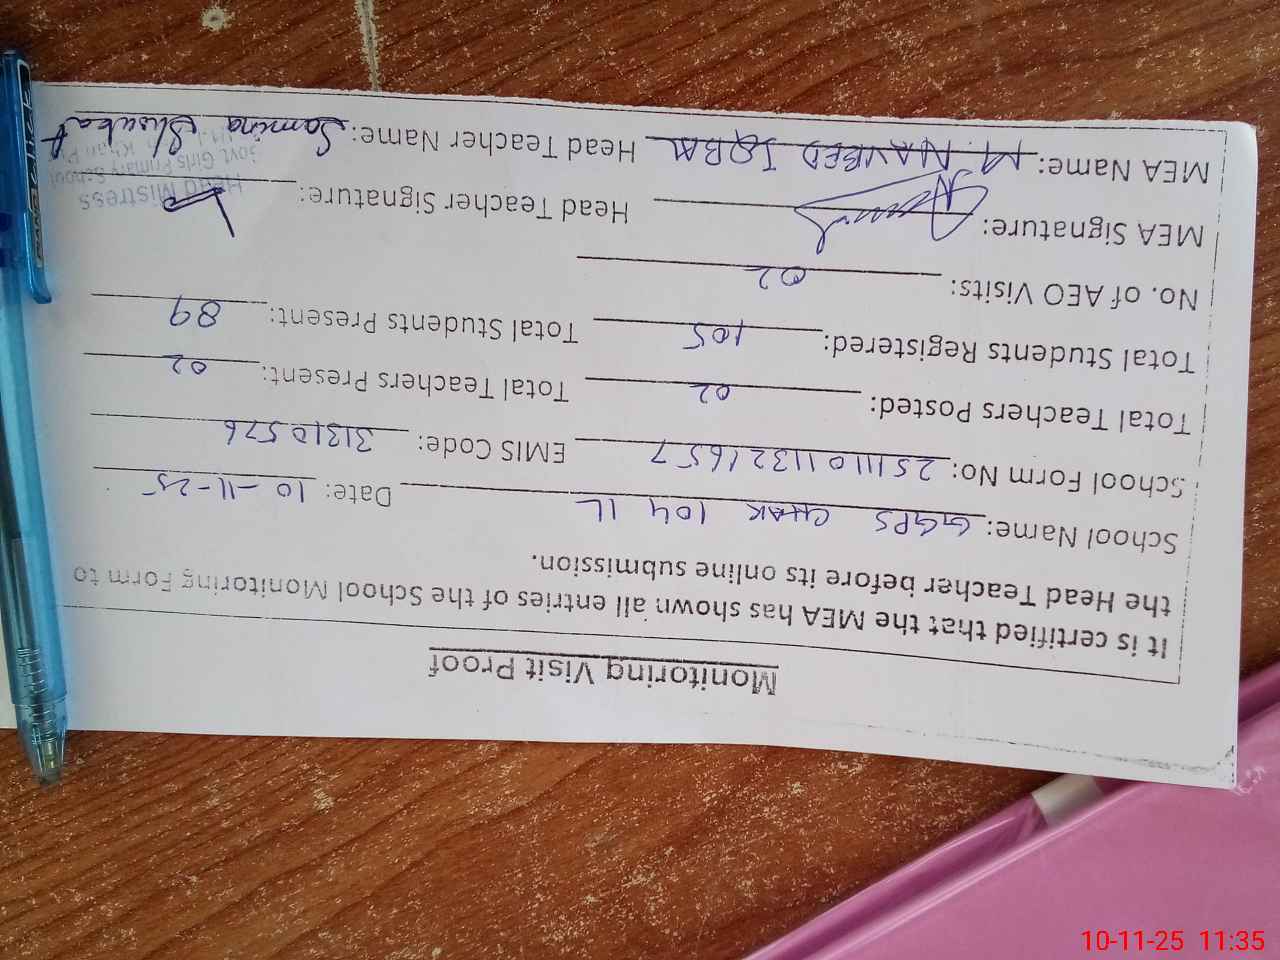 Monitoring Visit Proof
It is certified that the MEA has shown all entries of the School Monitoring Form to
the Head Teacher before its online submission.
School Name: GGPS CHAK 104 1L Date: 10-11-25
School Form No: 2511110113221657 EMIS Code: 31310576
Total Teachers Posted: 02 Total Teachers Present: 02
Total Students Registered: 105 Total Students Present: 89
No. of AEO Visits: 02
MEA Signature: Head Teacher Signature:
MEA Name: M. NAVEED IQBAL Head Teacher Name: Samina Shoukat
Head Mistress
Govt. Girls Primary School
10-11-25 11:35